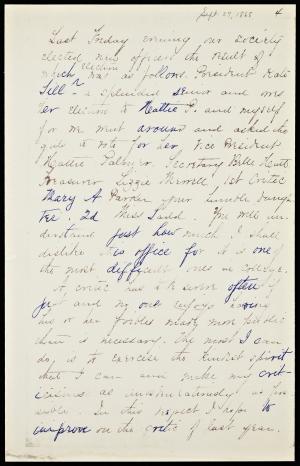 Sept. 27, 1865 4
Last Friday evening our society
elected new officers the result of
election
which was as follows. President Kate
Fell a splendid senior and owes
her election to Hattie P. and myself
for we went around and asked the
girls to vote for her, Vice President
Hattie Secretary Belle
Treasurer Lizzie Merrell, 1st Critic
Mary A. your humble
2d Miss Ladd. You will un-
derstand just how much I shall
dislike this office for it is one of
the most difficult ones in College.
A critic has to be severe often if
just and no one enjoys having
his or her foibles made more public
than is necessary. The most I can
do, is to exercise the kindest spirit
that I can and make my crit-
icisms as as pos-
sible. In this respect I hope to
improve on the critic of last year.